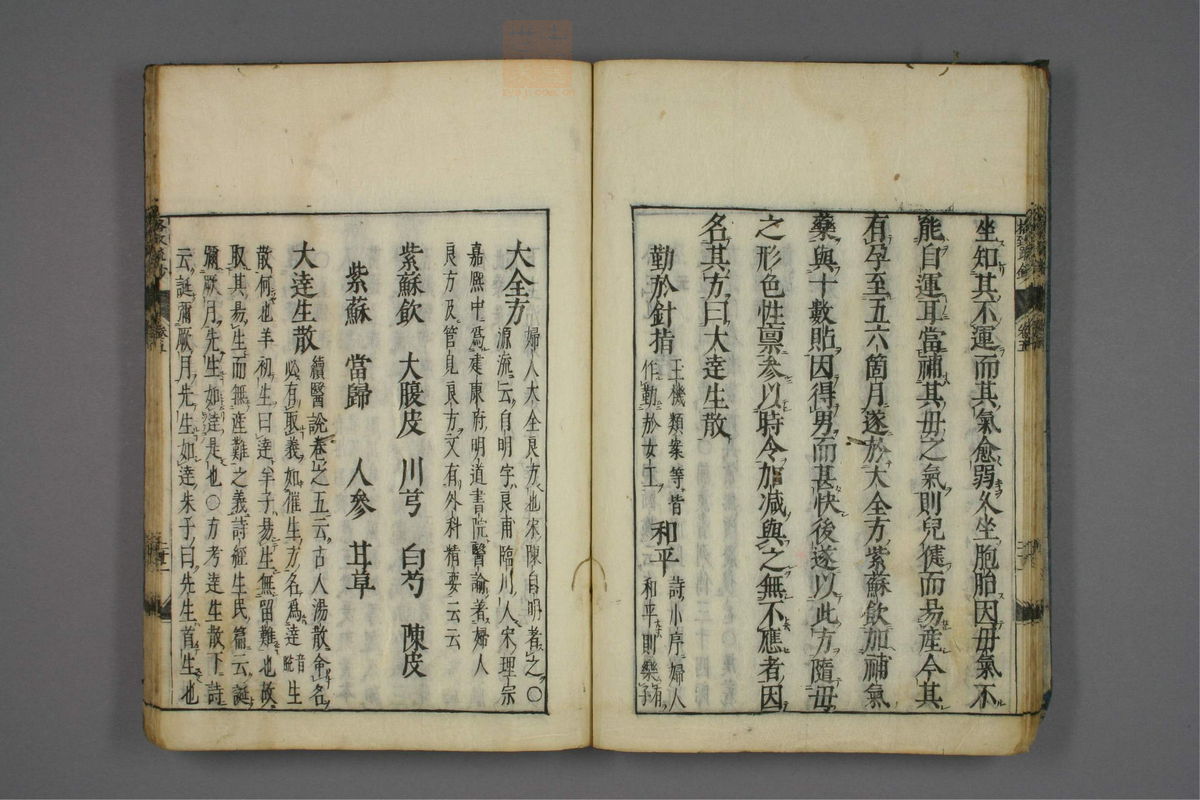 坐知其不運而其氣愈弱久坐胞胎因毋氣不
能自運耳當補其毋之氣則兒健而昜産今其
有孕至五六箇月遂於大全方紫蘇飲加補氣
藥與十數貼因得男而甚快後遂以此方隨毋
之形色性禀参以時令加减與之無不應者因
名其方曰大逹生散
勤於針指
王機類案等皆
作勤於女工
和平
詩小序婦人
和平則樂有子
大全方
婦人大全良方也宋陳自明者之〇
源流云自明字良甫臨川人宋理宗
嘉熙中爲建康府明道書院醫諭著婦人
良方及管見良方文有外科精要云云
紫蘇飲 大腹皮 川芎 白芍 陳皮
紫蘇 當歸 人參 甘草
大逹生散
續醫說卷之五云古人湯散命名
必有取義如催生方名爲逹音生
散何也羊初生曰逹羊子昜生無留難也故
取其昜生而無産難之義詩經生民篇云誕
彌厥月先生如逹是也〇方考逹生散下詩
云誕彌厥月先生如逹朱子曰先生首生也